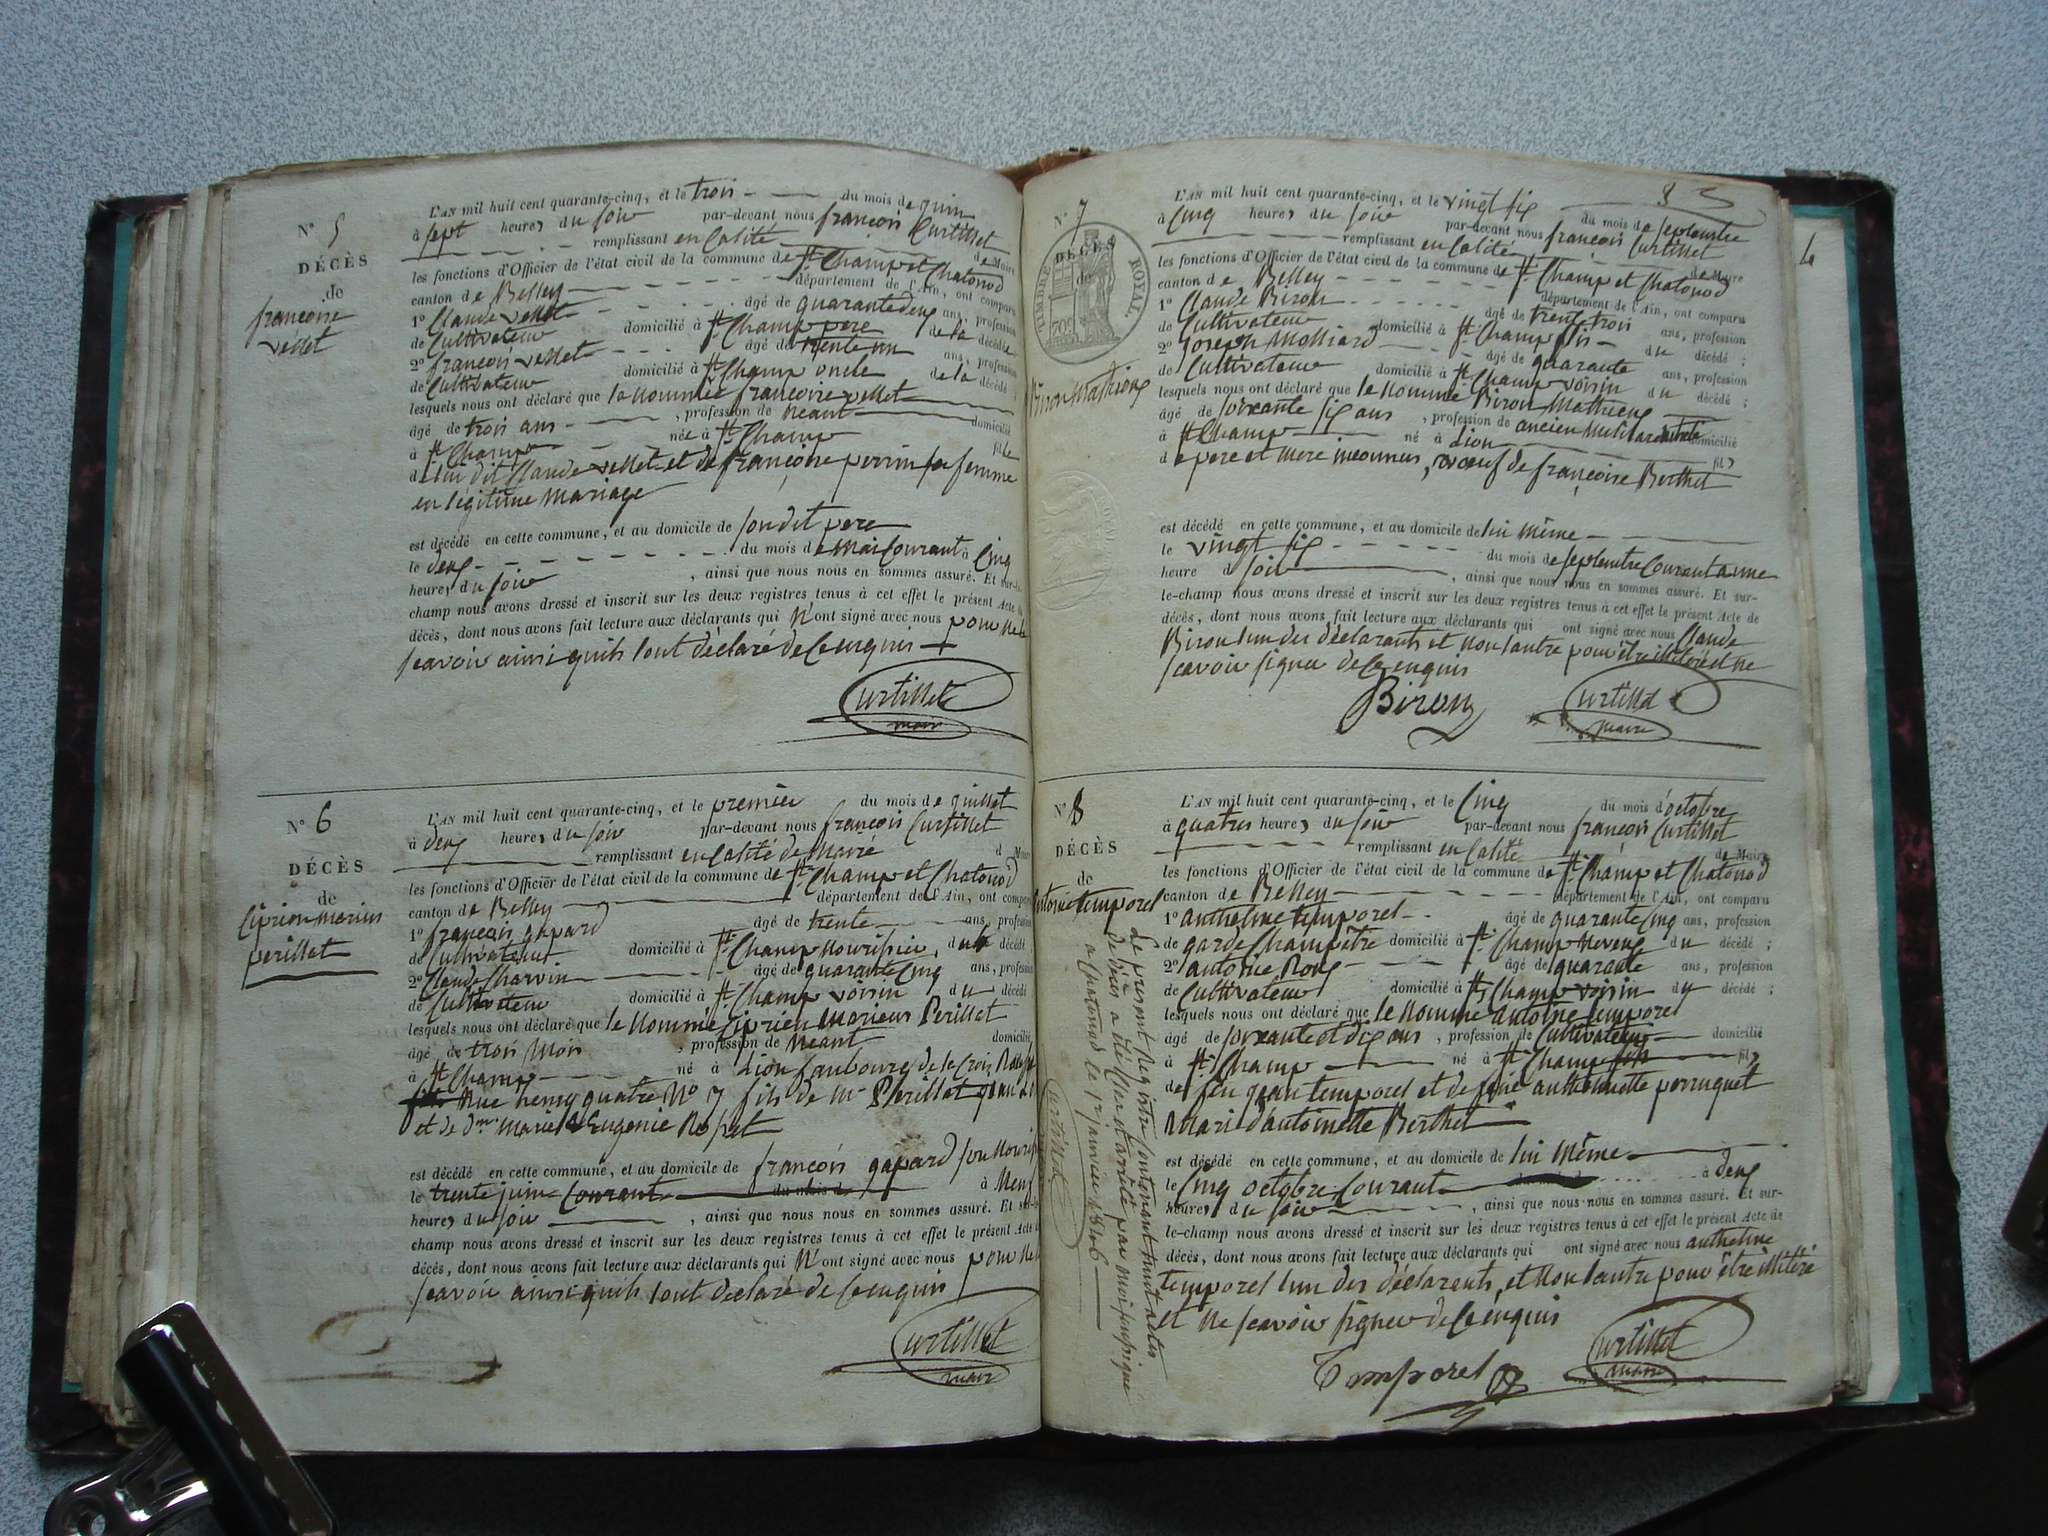 N° 5
DÉCÈS
de
françoise
vellet
L'AN mil huit cent quarante-cinq, et le trois du mois de juin
à sept heures du soir par-devant nous françois Curtillet
remplissant en calité de Maire
les fonctions d'Officier de l'état civil de la commune de St Champ et Chatonod
canton de Belley département de l'Ain, ont comparu
1° Claude vellet âgé de quarante deux ans, profession
de Cultivateur domicilié à St Champ pere de la décédée
2° françois vellet âgé de trente un ans, profession
de Cultivateur domicilié à St Champ oncle de la décédée
lesquels nous ont déclaré que la nommée françoise vellet
âgé de trois ans, profession de neant domicilié
à St Champ née à St Champ fille
de lui dit Claude vellet et de françoise perrin sa femme
en légitime mariage
est décédé en cette commune, et au domicile de son dit pere
le deux du mois de mai Courant à Cinq
heures du soir, ainsi que nous nous en sommes assuré. Et sur-le-
champ nous avons dressé et inscrit sur les deux registres tenus à cet effet le présent Acte de
décès, dont nous avons fait lecture aux déclarants qui N'ont signé avec nous pour ne le
scavoir ainsi quils lont déclaré de Ce enquis
Curtillet
maire
N° 6
DÉCÈS
de
Ciprien marius
perillet
L'AN mil huit cent quarante-cinq, et le premier du mois de juillet
à deux heures du soir par-devant nous françois Curtillet
remplissant en calité de Maire d Maire
les fonctions d'Officier de l'état civil de la commune de St Champ et Chatonod
canton de Belley département de l'Ain, ont comparu
1° françois gapard âgé de trente ans, profession
de Cultivateur domicilié à St Champ nourissier, du décédé
2° Claude Charvin âgé de quarante Cinq ans, profession
de Cultivateur domicilié à St Champ voisin du décédé
lesquels nous ont déclaré que le nommé Ciprien marieus Perillet
âgé de trois mois, profession de neant domicilié
à St Champ né à Lion faubourg de la Croix Rousse
Rue henry quatre N° 7 fils de mr Perillet jean
et de dme marie Eugenie
est décédé en cette commune, et au domicile de françois gapard son nouris
le trente juin Courant du mois de à neuf
heures du soir, ainsi que nous nous en sommes assuré. Et sur-le-
champ nous avons dressé et inscrit sur les deux registres tenus à cet effet le présent Acte de
décès, dont nous avons fait lecture aux déclarants qui N'ont signé avec nous pour ne le
scavoir ainsi quils lont declaré de Ce enquis
Curtillet
maire
8
4
N° 7
DÉCÈS
de
TIMBRE ROYAL
Biron Mathieux
L'AN mil huit cent quarante-cinq, et le vingt six du mois de septembre
à Cinq heures du soir par-devant nous françois Curtillet
remplissant en calité de Maire
les fonctions d'Officier de l'état civil de la commune de St Champ et Chatonod
canton de Belley département de l'Ain, ont comparu
1° Claude Biron âgé de trente trois ans, profession
de Cultivateur domicilié à St Champ fils du décédé ;
2° joseph Molliard âgé de quarante ans, profession
de Cultivateur domicilié à St Champ voisin du décédé ;
lesquels nous ont déclaré que le nommé Biron Mathieux
âgé de soixante six ans, profession de ancien militaire domicilié
à St Champ né à Lion fils
de pere et mere inconnus, voeuf de françoise Berthet
est décédé en cette commune, et au domicile de lui même
le vingt six du mois de septembre Courant a une
heure d soir, ainsi que nous nous en sommes assuré. Et sur-
le-champ nous avons dressé et inscrit sur les deux registres tenus à cet effet le présent Acte de
décès, dont nous avons fait lecture aux déclarants qui ont signé avec nous Claude
Biron lun des déclarants et non lautre pour être illiteré et ne
scavoir signer de Ce enquis
Biron
Curtillet
maire
N° 8
DÉCÈS
de
antoine temporel
L'AN mil huit cent quarante-cinq, et le Cinq du mois d'octobre
à quatres heures du soir par-devant nous françois Curtillet
remplissant en calité de Maire
les fonctions d'Officier de l'état civil de la commune de St Champ et Chatonod
canton de Belley département de l'Ain, ont comparu
1° anthelme temporel âgé de quarante Cinq ans, profession
de garde Champêtre domicilié à St Champ neveux du décédé ;
2° antoine Roux âgé de quarante ans, profession
de Cultivateur domicilié à St Champ voisin du décédé ;
lesquels nous ont déclaré que le nommé antoine temporel
âgé de soixante et dix ans, profession de Cultivateur domicilié
à St Champ né à St Champ fils
de feu jean temporel et de feue anthelmette perruquet
Mari d'antoinette Berthet
est décédé en cette commune, et au domicile de lui même
le Cinq octobre Courant à deux
heures du soir, ainsi que nous nous en sommes assuré. Et sur-
le-champ nous avons dressé et inscrit sur les deux registres tenus à cet effet le présent Acte de
décès, dont nous avons fait lecture aux déclarants qui ont signé avec nous anthelme
temporel lun des déclarants, et non lautre pour être illiteré
et ne scavoir signer de Ce enquis
Temporel
Curtillet
maire
Le present Registre Contenant huit actes
de décès a été Clos et arrêté par moi soussigné
a Chatonod le 1er janvier 1846
Curtillet